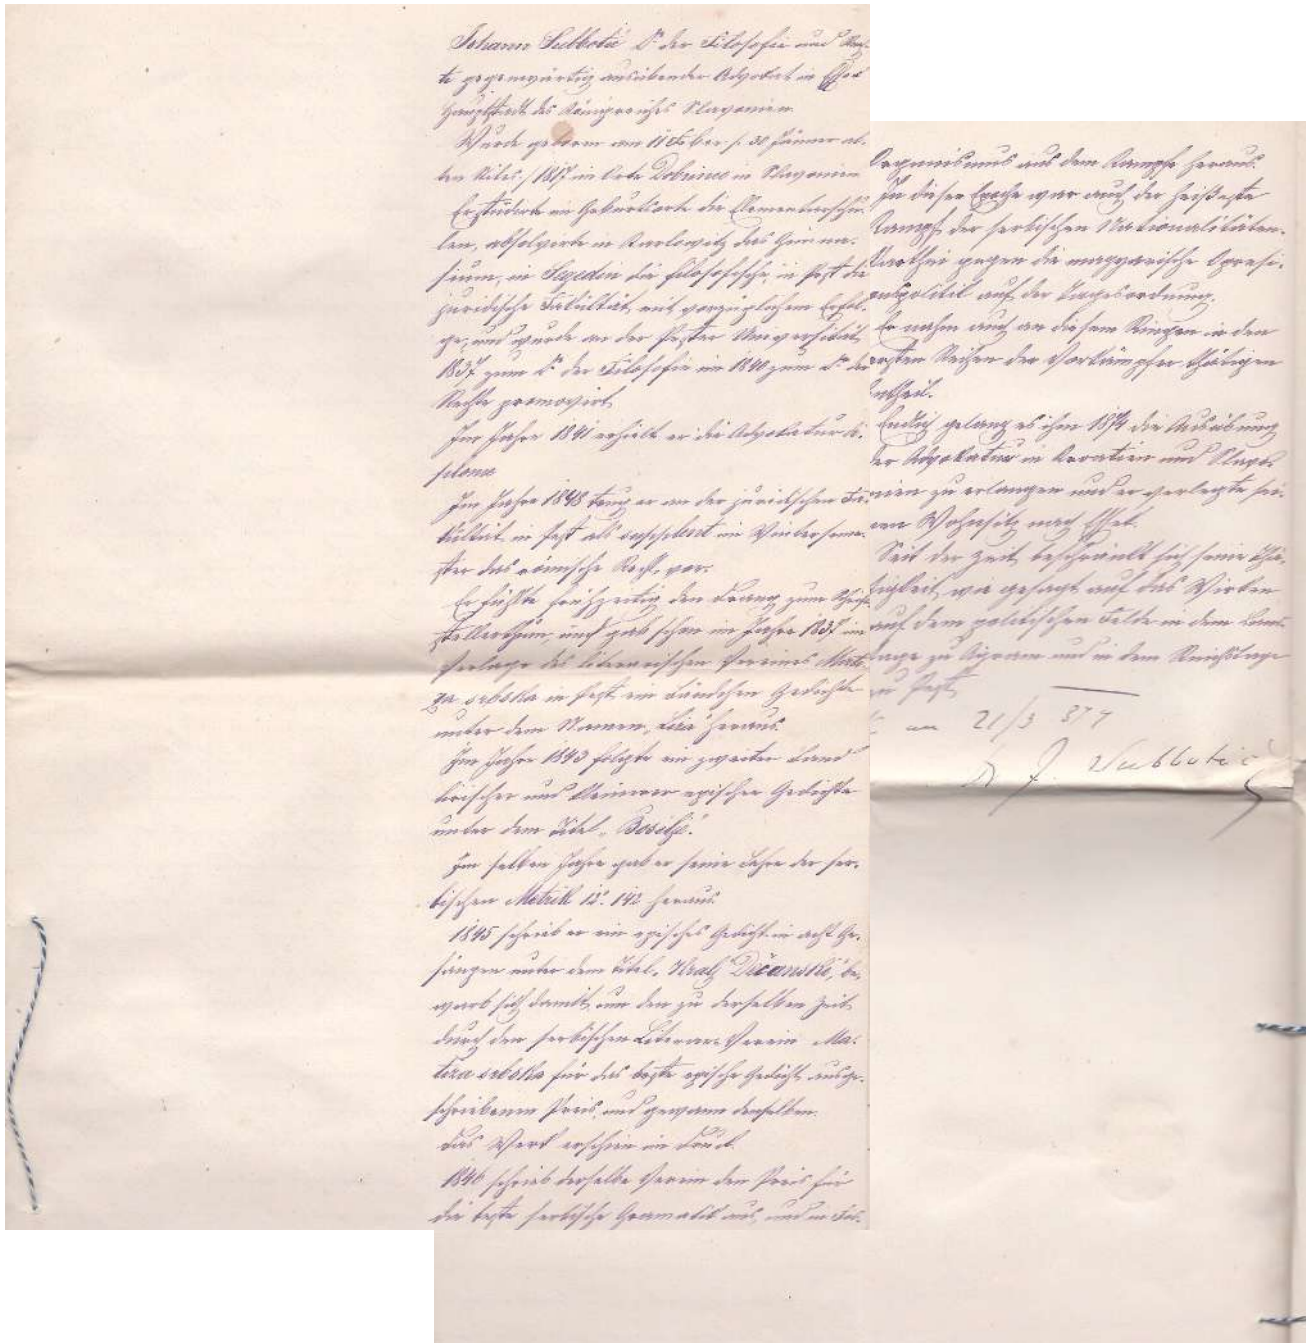 Johann Subbotić Dr der Filosofie und Rech-
te gegenwärtig ausübender Advokat in Essek
Hauptstadt des Königreiches Slavonien
Wurde geboren am 11 Feber /: 30 Jänner al-
ten Stiles / 1817 im Orte Dobrince in Slavonien
Er studirte im Geburtsorte die Elementarschu-
len, absolvirte in Karlowitz das Gimna-
sium, in Segedin die filosofische, in Pest die
juridische Fakultät mit vorzüglichem Erfol-
ge, und wurde an der Pester Universität
1837 zum Dr der Filosofie im 1840 zum Dr der
Rechte promovirt
Im Jahre 1841 erhielt er die Advokatur di-
plome
Im Jahre 1848 trug er an der juridischen Fa-
kultät in Pest als Supplent im Winterseme-
ster das römische Recht vor.
Er fühlte frühzeitig den Drang zum Schrift-
stellerthum, und gab schon im Jahre 1837 im
Verlage des literarischen Vereines Mati-
za srbska in Pest ein Bändchen Gedichte
unter dem Namen „Lira" heraus.
Im Jahre 1843 folgte ein zweiter Band
lirischer und kleinerer epischer Gedichte
unter dem Titel „Bosilje".
Im selben Jahre gab er seine Lehre der ser-
bischen Metrik heraus.
1845 schrieb er ein episches Gedicht in acht Ge-
sängen unter dem Titel „Kralj Dečanski", be-
warb sich damit um den zu derselben Zeit
durch den serbischen Literar-Verein Ma-
tiza srbska für das beste epische Gedicht ausge-
schriebenen Preis, und gewann denselben.
Das Werk erschien im Druck.
1846 schrieb derselbe Verein den Preis für
die beste serbische Gramatik aus, und
Organismus aus dem Kampfe heraus.
In dieser Epoche war auch der heißeste
Kampf der serbischen Nationalitäten-
Parthei gegen die magyarische Opressi-
onspolitik auf der Tagesordnung.
Er nahm auch an diesem Ringen in den
ersten Reihen der Vorkämpfer thätigen
Antheil.
Endlich gelang es ihm 1874 die Ausübung
der Advokatur in Kroatien und Slavo-
nien zu erlangen und er verlegte sei-
nen Wohnsitz nach Essek.
Seit der Zeit beschränkt sich seine Thä-
tigkeit wie gesagt auf das Wirken
auf dem politischen Felde in dem Land-
tage zu Agram und in dem Reichstage
zu Pest
am 21/3 874
Dr J. Subbotić